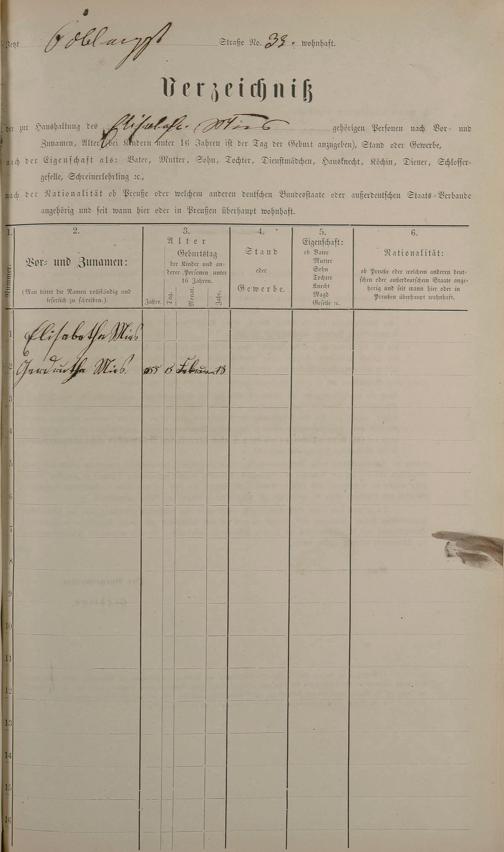 Straße No. 33. wohnhaft.
Verzeichniß
der zur Haushaltung des Elisabeth Mies gehörigen Personen nach Vor- und
Zunamen, Alter (bei Kindern unter 16 Jahren ist der Tag der Geburt anzugeben), Stand oder Gewerbe,
nach der Eigenschaft als: Vater, Mutter, Sohn, Tochter, Dienstmädchen, Hausknecht, Köchin, Diener, Schlosser-
geselle, Schreinerlehrling ꝛc,
nach der Nationalität ob Preuße oder welchem anderen deutschen Bundesstaate oder außerdeutschen Staats-Verbande
angehörig und seit wann hier oder in Preußen überhaupt wohnhaft.
1.
Nummer.
2.
Vor- und Zunamen:
(Man bittet die Namen vollständig und
leserlich zu schreiben.)
3.
Alter
Geburtstag
der Kinder und an-
derer Personen unter
16 Jahren.
Jahre.
Tag.
Monat.
Jahr.
4.
Stand
oder
Gewerbe.
5.
Eigenschaft:
ob Vater
Mutter
Sohn
Tochter
Knecht
Magd
Geselle ꝛc.
6.
Nationalität:
ob Preuße oder welchem anderen deut-
schen oder außerdeutschen Staate ange-
hörig und seit wann hier oder in
Preußen überhaupt wohnhaft.
1 Elisabetha Mies
2 Gerdrutha Mies 15 Februar
3
4
5
6
7
8
9
10
11
12
13
14
15
16